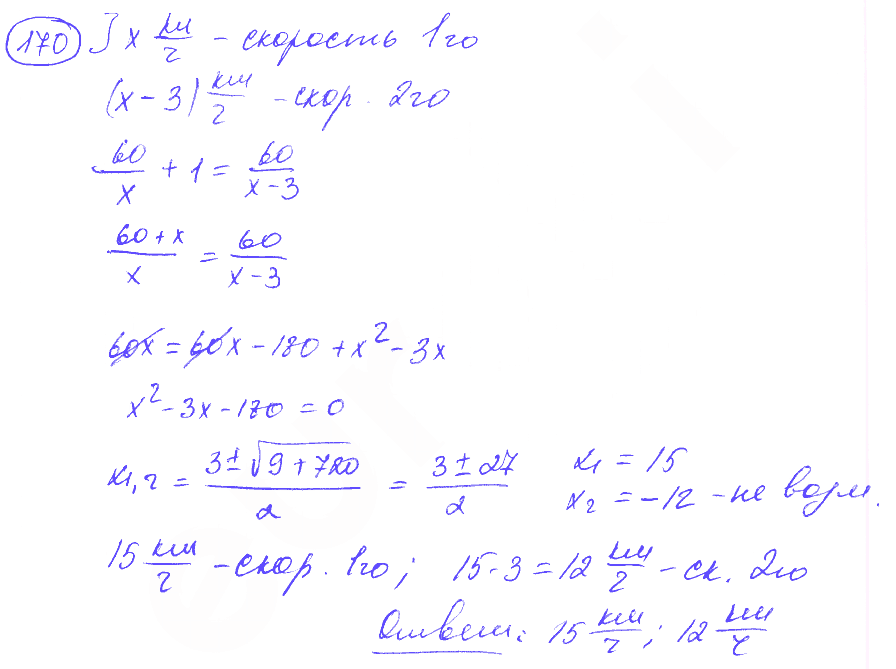 170 ] x км/ч - скорость 1го
(x - 3) км/ч - скор. 2го
60/x + 1 = 60/(x - 3)
(60 + x)/x = 60/(x - 3)
60x = 60x - 180 + x² - 3x
x² - 3x - 180 = 0
x1,2 = (3 ± √(9 + 720))/2 = (3 ± 27)/2 x1 = 15
x2 = -12 - не возм.
15 км/ч - скор. 1го; 15-3 = 12 км/ч - ск. 2го
Ответ: 15 км/ч; 12 км/ч